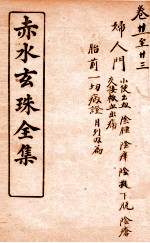 卷廿至廿三
婦人門 小便出血 陰腫 陰痒 陰挺下脫 陰瘡
交接輒血出痛
胎前一切病證 月別൦病
赤水玄珠全集